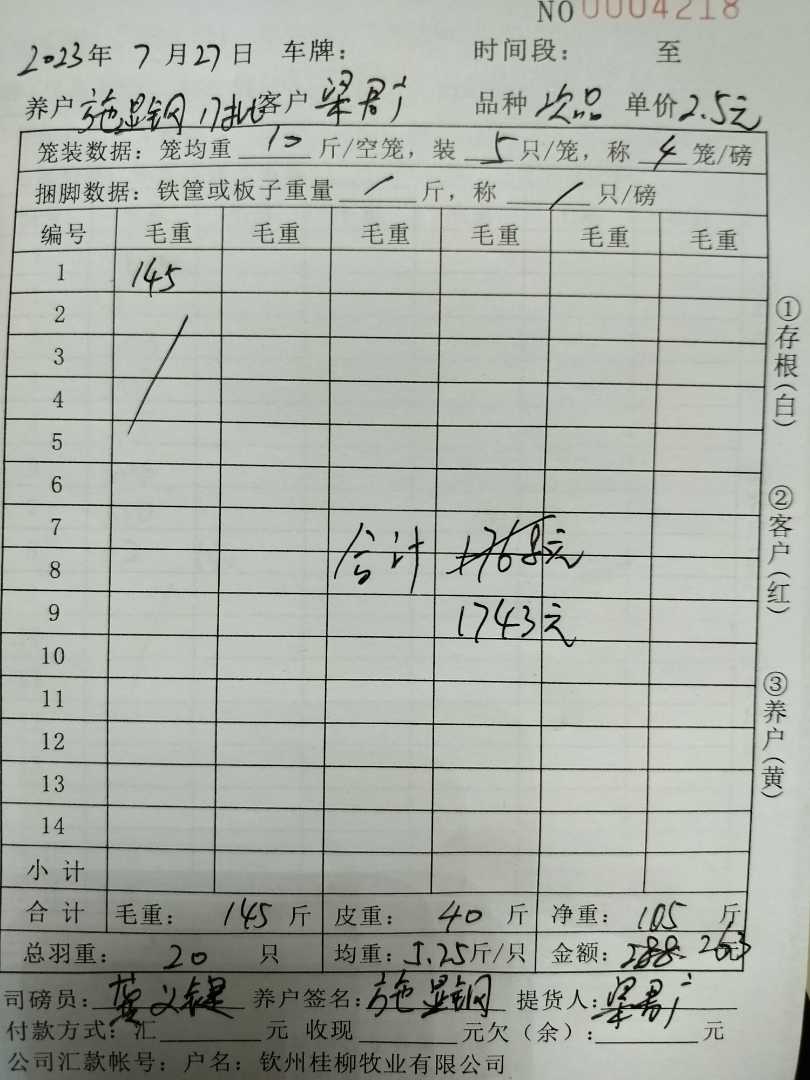 NO 0004218
2023年 7月27日 车牌： 时间段： 至
养户 施显钢 17批 客户 梁君广 品种 次品 单价2.5元
笼装数据：笼均重 10 斤/空笼，装 5 只/笼，称 4 笼/磅
捆脚数据：铁筐或板子重量 / 斤，称 / 只/磅
编号 毛重 毛重 毛重 毛重 毛重 毛重
1 145
2
3
4
5
6
7
8 合计 1768元
9 1743元
10
11
12
13
14
小 计
合 计 毛重： 145 斤 皮重： 40 斤 净重： 105 斤
总羽重： 20 只 均重：5.25斤/只 金额：288 263元
司磅员： 养户签名：施显钢 提货人：梁君广
付款方式：汇 元 收现 元欠（余）： 元
公司汇款帐号：户名：钦州桂柳牧业有限公司
①存根（白） ②客户（红） ③养户（黄）